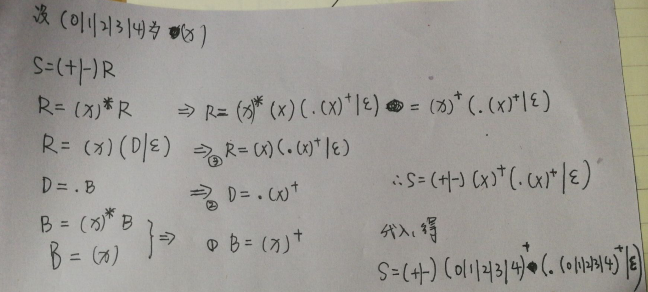 设 (0|1|2|3|4)为 (x)
S=(+|-)R
R=(x)*R ⇒ R=(x)*(x)(.(x)⁺|ε) = (x)⁺(.(x)⁺|ε)
R=(x)(D|ε) ⇒③ R=(x)(.(x)⁺|ε)
D=.B ⇒② D=.(x)⁺
∴S=(+|-)(x)⁺(.(x)⁺|ε)
B=(x)*B
B=(x) } ⇒ ① B=(x)⁺
代入得
S=(+|-)(0|1|2|3|4)⁺(.(0|1|2|3|4)⁺|ε)